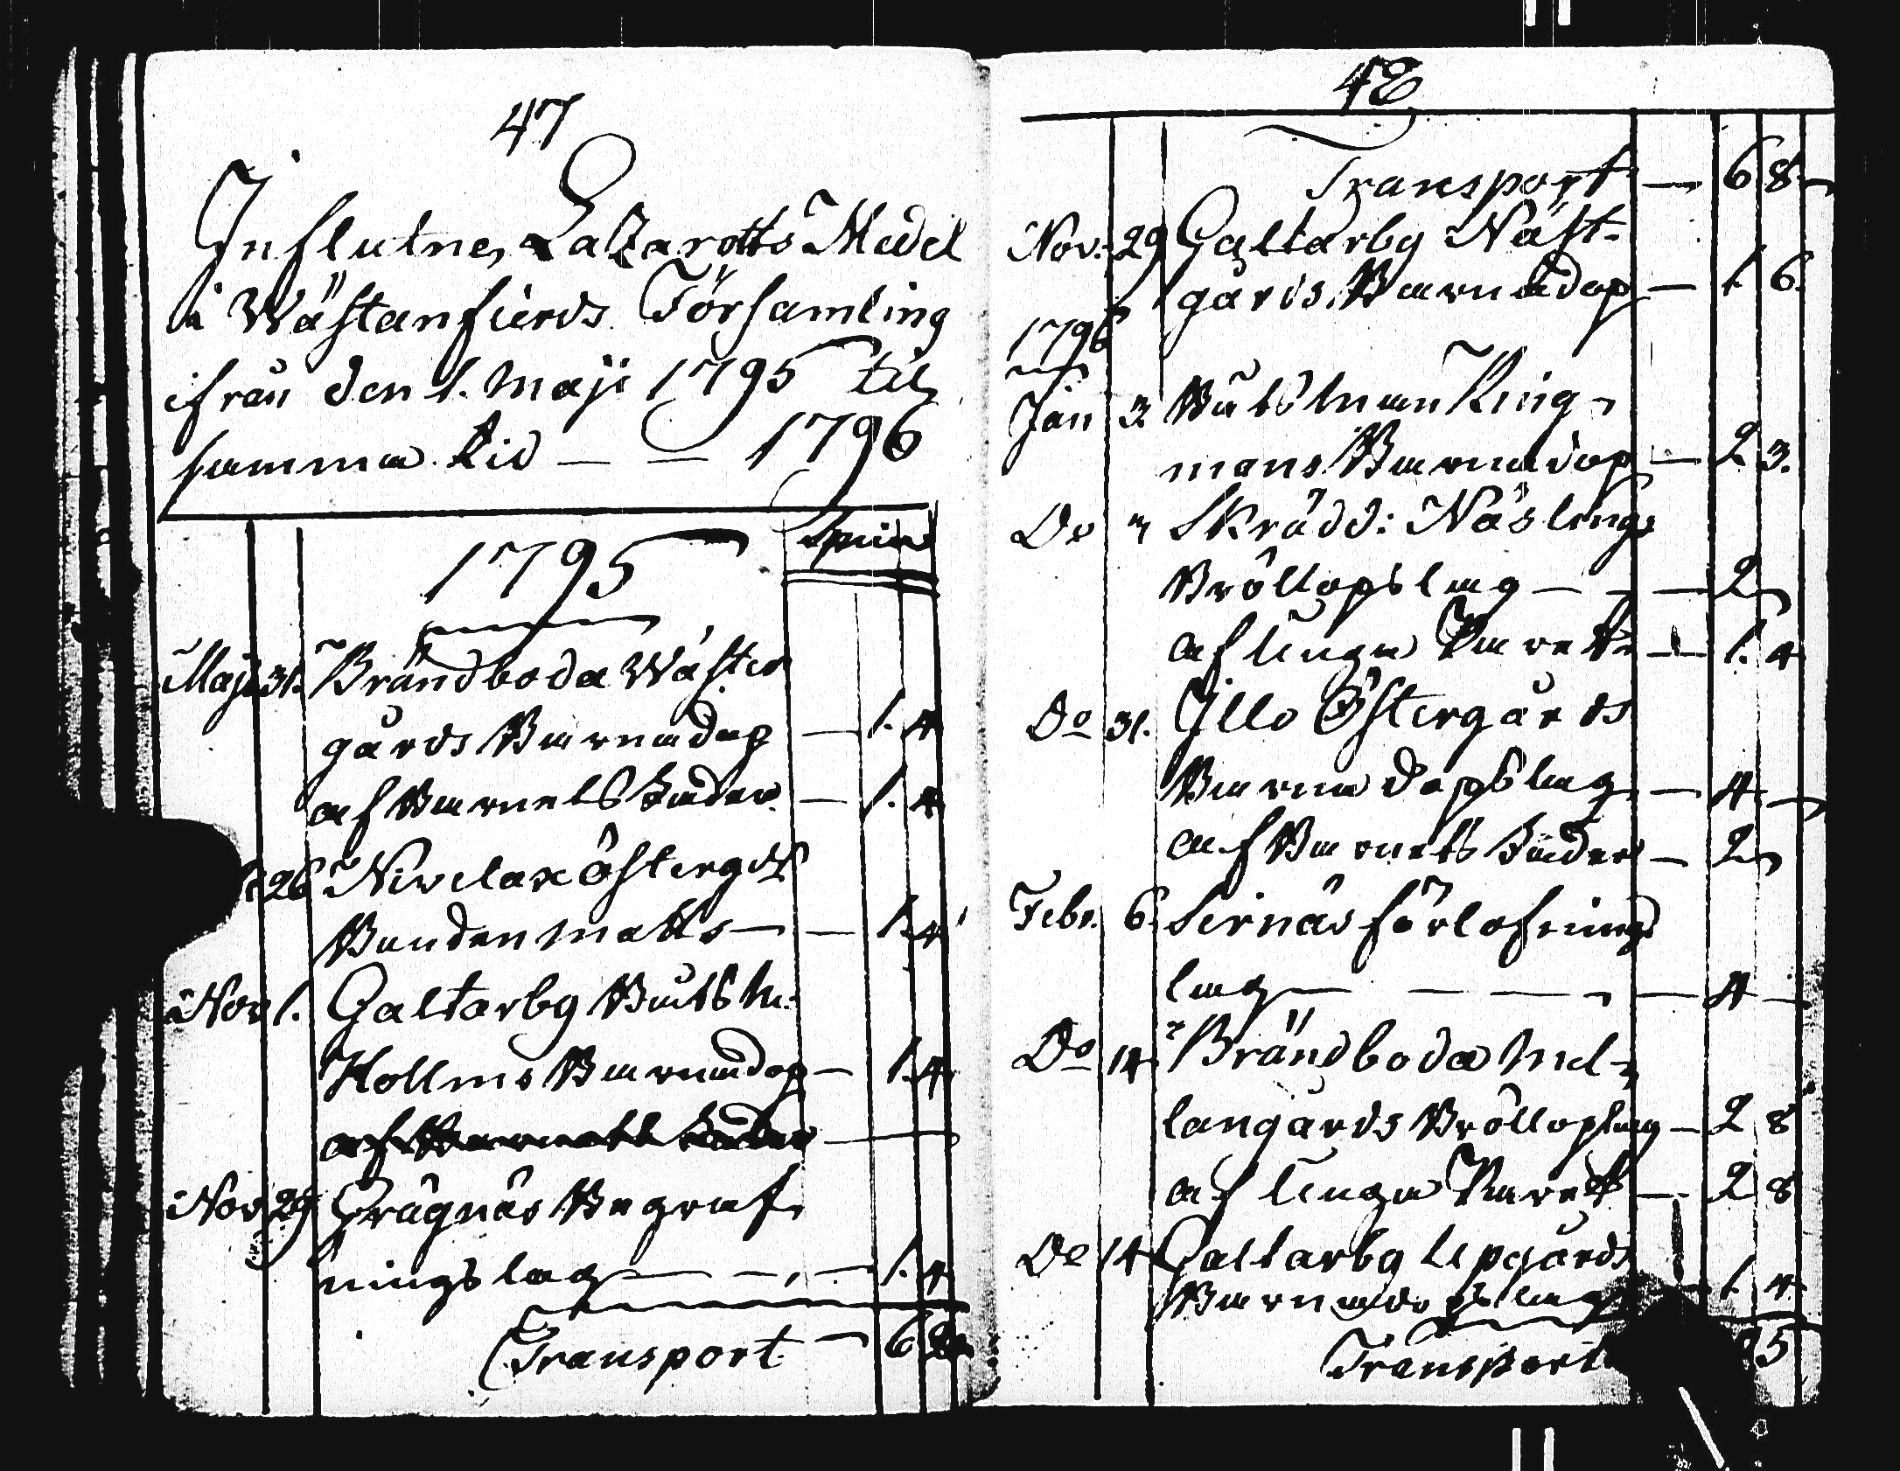 47
Influtne Lazaretts Medel
i Wästanfierds Församling
ifrån den 1. Maji 1795 til
samma tid — — 1796
1795
Maji 31. Brändboda Wäster
gårds Barnadop — 1. 4
af Barnets fader — 1. 4
26 Nivelax östergds
Bonden Matts — — 1. 4
Nov 1. Galtarby Båtsm:
Hollms Barnadop — 1. 4
af Barnets fader —
Nov 29 Grägnäs Begraf
ningslag — — — 1. 4
Transport — 6
48
Transport — 6 8 —
Nov: 29 Galtarby Näst-
gårds Barnadop — 1 6.
1796
Jan 3 Båtsman Ring-
mans Barnadop — 2 3.
Do Skrädd: Näslings
Bröllopslag — — — 2
af unga Paret — 1. 4
Do 31. Illo Östergårds
Barnadopslag — 4 —
af Barnets fader — 2
Febr. 6. Sirnäs förlofnings
lag — — — — 4 —
Do 14. Brändboda Mel-
langårds Bröllopslag — 2 8
af unga Paret — 2 8
Do 14 Galtarby Uppgårds
Barnadopslag 1. 4
Transport 5